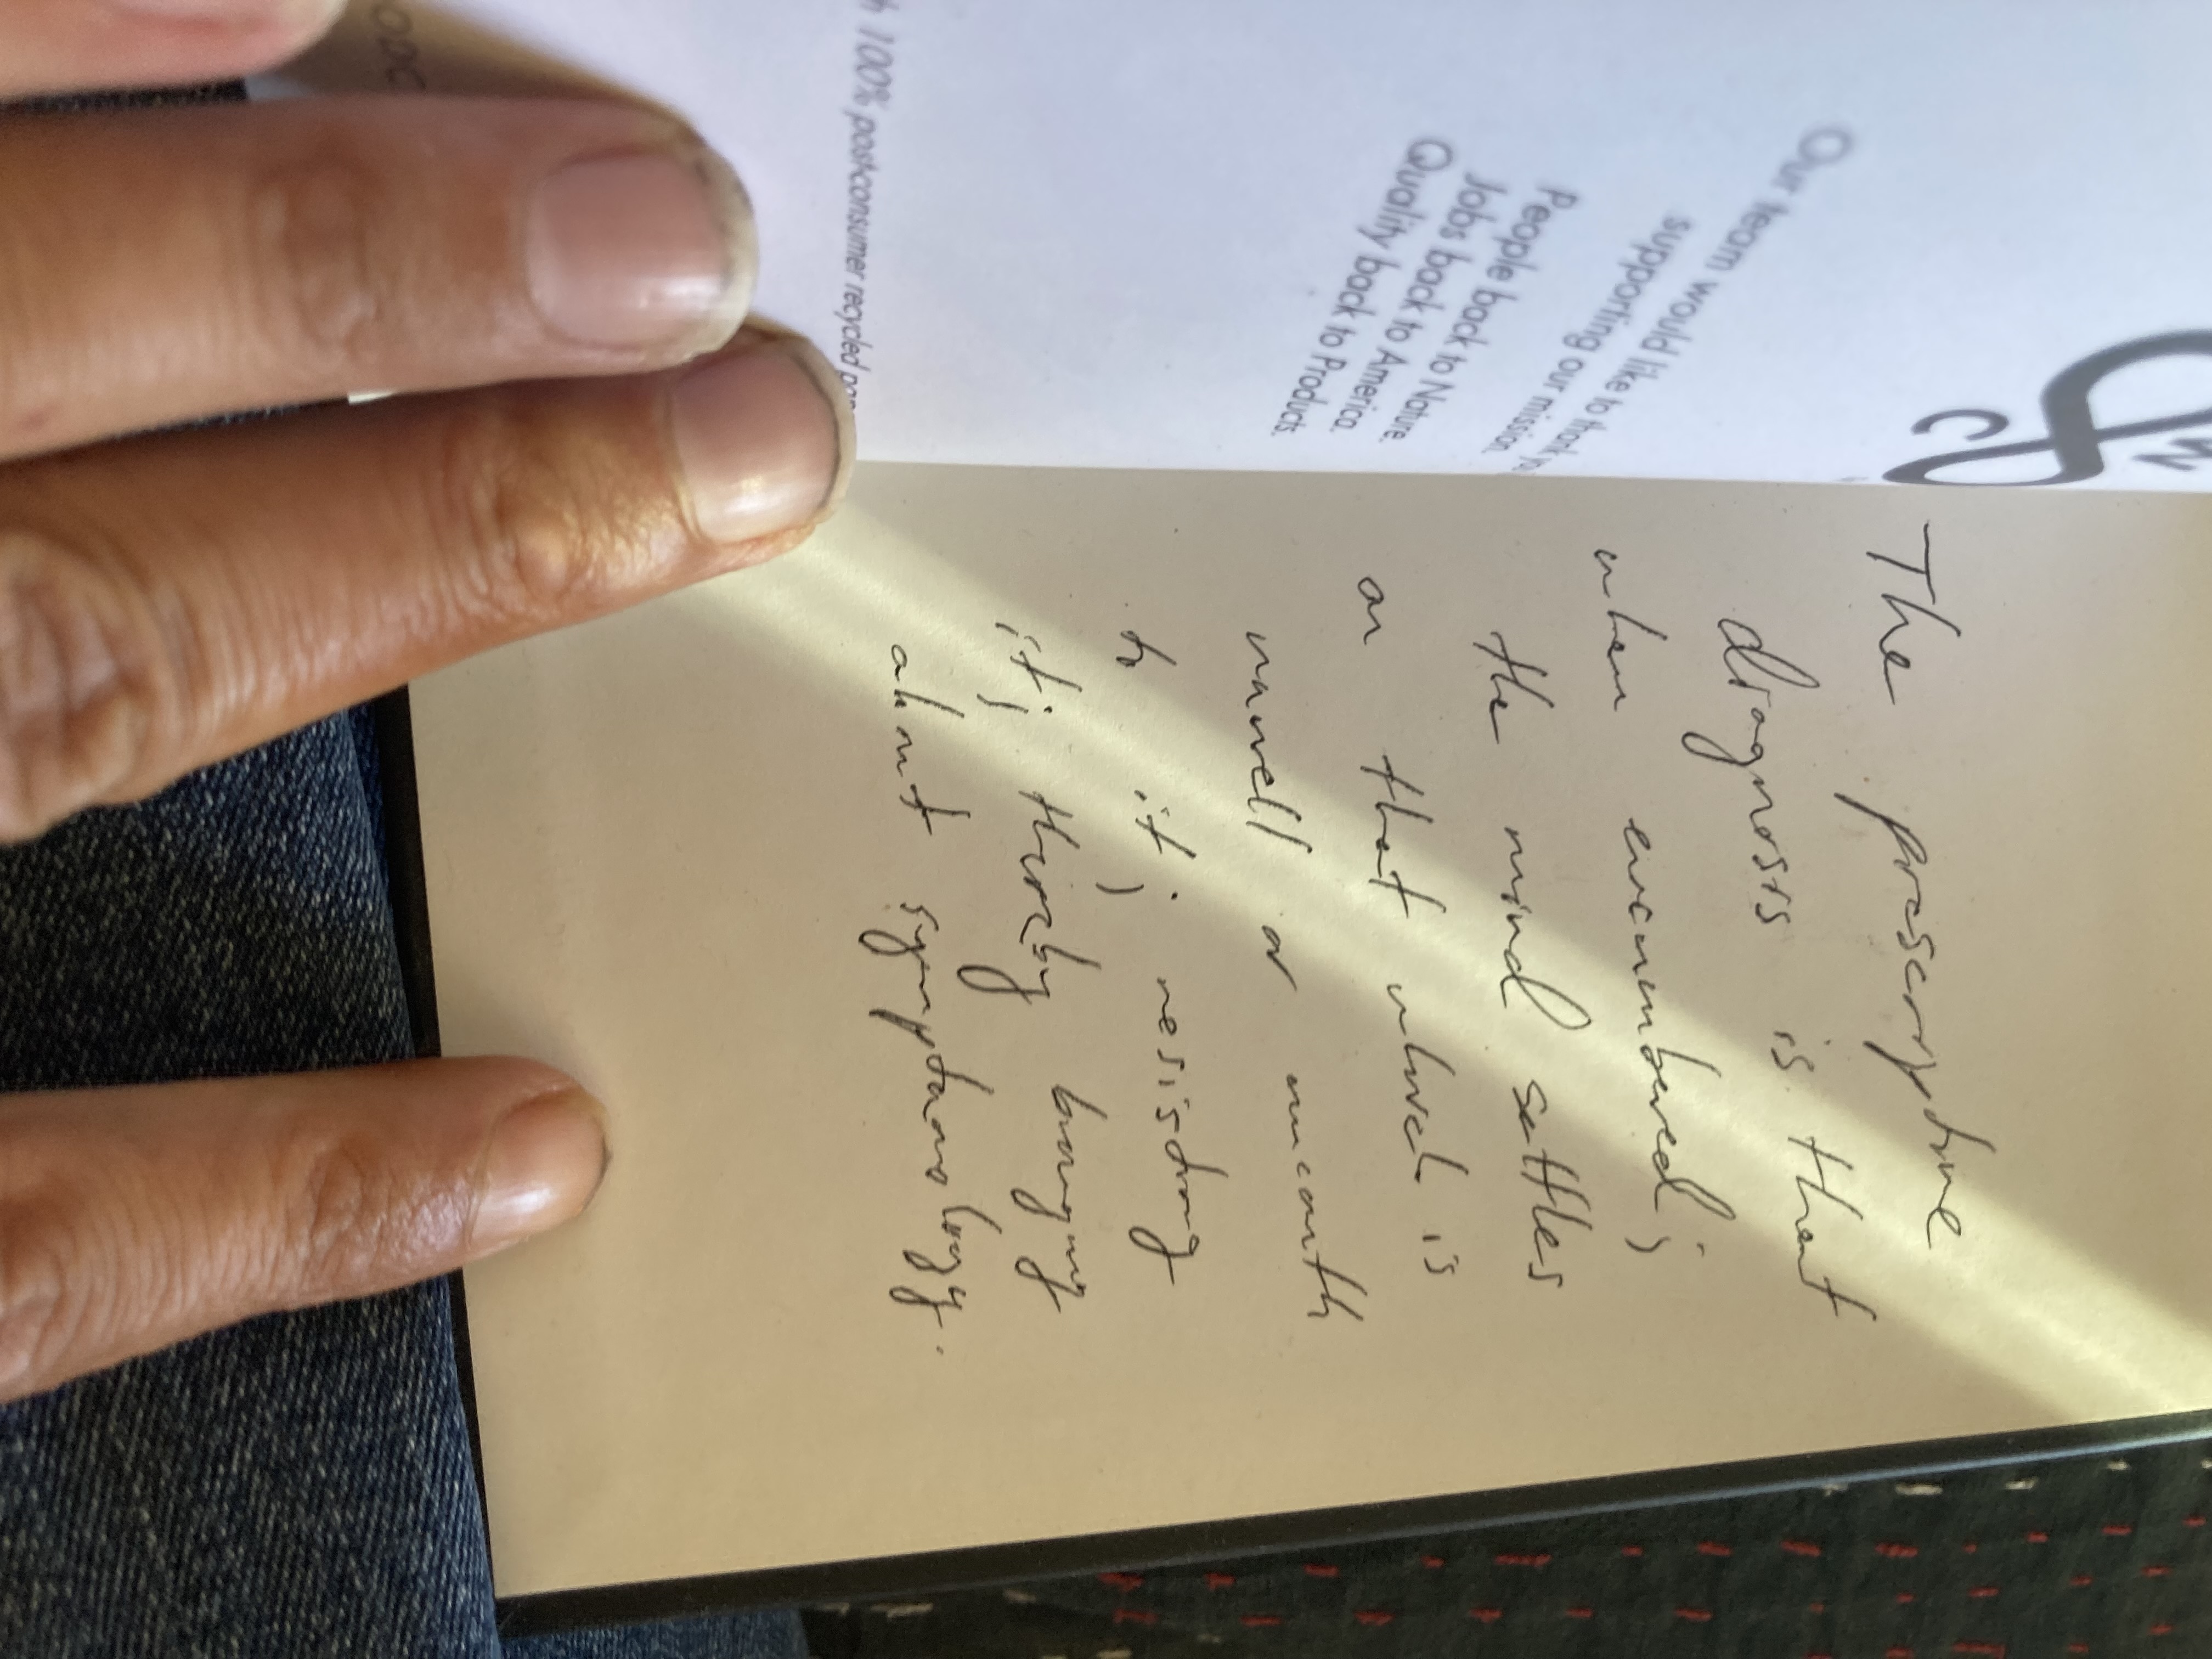 The prescriptive
diagnosis is that
when encumbered,
the mind settles
on that which is
unwell or uncouth
to it, resisting
it, thereby bringing
about symptomology.
Our team would like to thank
supporting our mission
People back to Nature.
Jobs back to America.
Quality back to Products.
100% post-consumer recycled